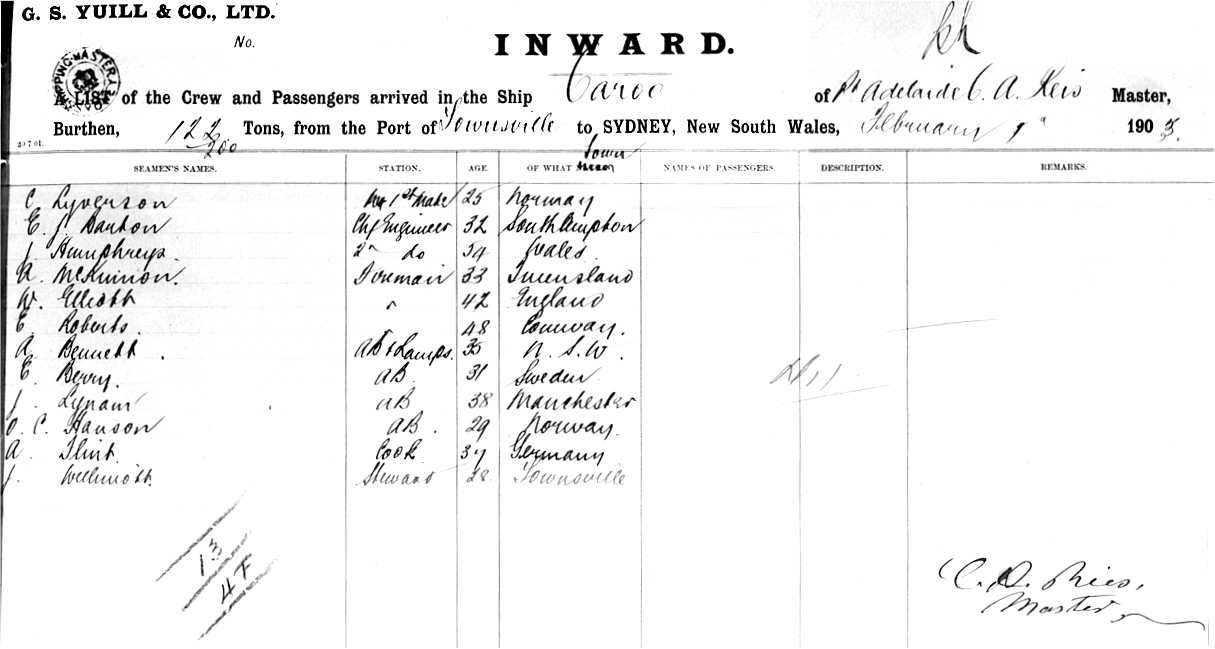 G. S. YUILL & CO., LTD.
No.
INWARD.
SHIPPING MASTER'S
A LIST of the Crew and Passengers arrived in the Ship Caroo of Pt Adelaide C. A. Reis Master,
Burthen, 122 Tons, from the Port of Townsville to SYDNEY, New South Wales, February 1903.
200
20 7 01.
Town
SEAMEN'S NAMES. STATION. AGE OF WHAT NAMES OF PASSENGERS. DESCRIPTION. REMARKS.
C. Lyverson 1st Mate 25 Norway
E. J. Barton Chf Engineer 32 Southampton
J. Humphreys. 2n do 54 Wales.
A. McKinnon. Fireman 33 Queensland
W. Elliott " 42 England
E. Roberts. " 48 Conway.
A. Bennett. AB & Lamps. 35 N. S. W.
E. Berry. AB 31 Sweden
J. Lynam AB 38 Manchester
O. C. Hanson AB. 29 Norway.
A. Flint. Cook 37 Germany
J. Wellmott. Steward 28 Townsville
13
47
C. A. Ries,
Master,